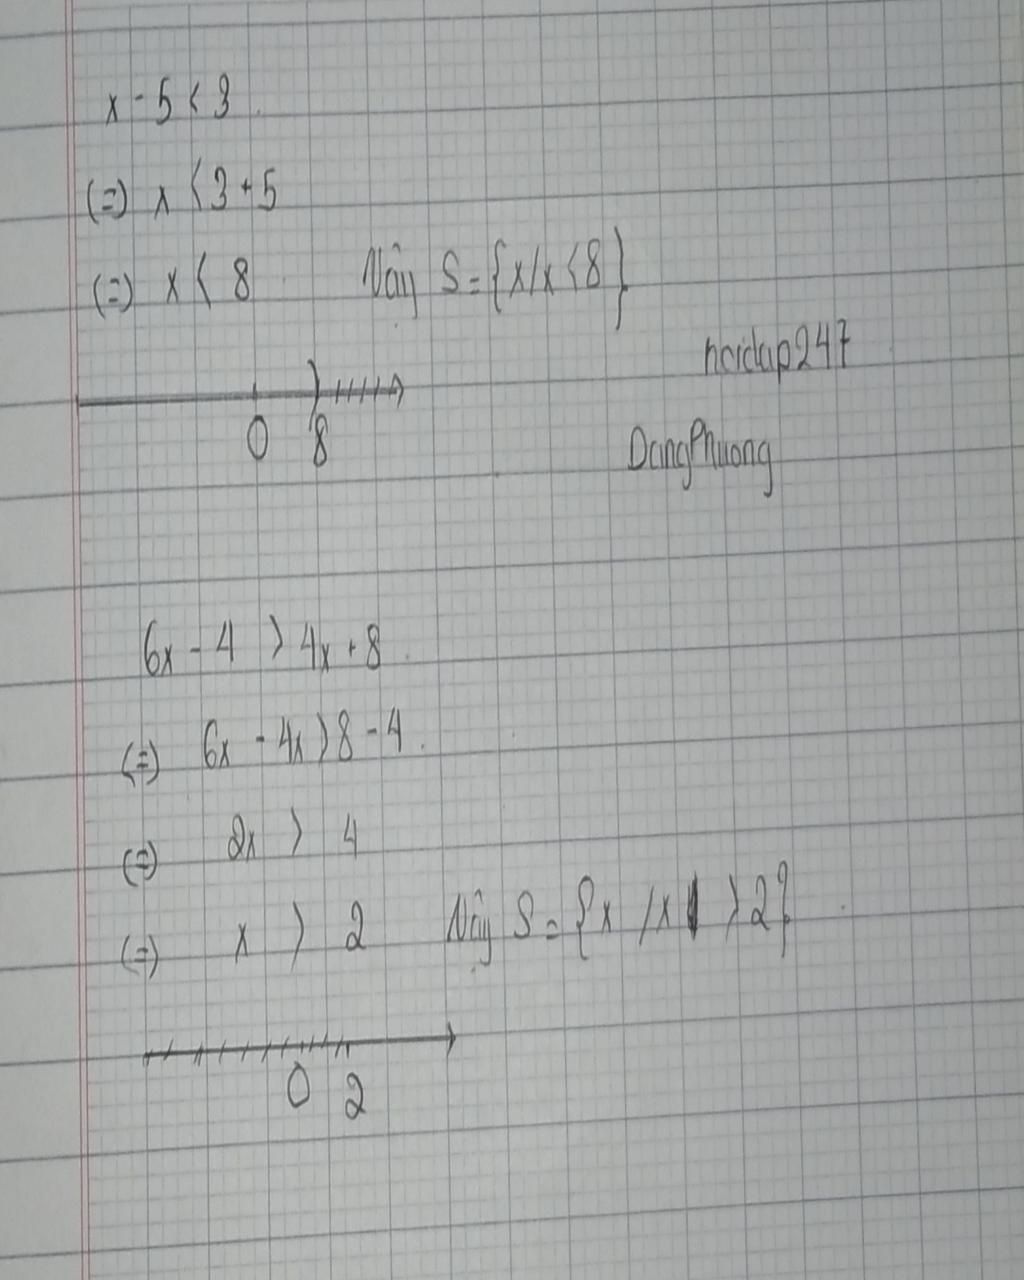 x - 5 < 3
(=) x < 3 + 5
(=) x < 8 Vậy S = {x/x < 8}
hoidap247
0 8
DangPhuong
6x - 4 > 4x + 8
(=) 6x - 4x > 8 - 4.
(=) 2x > 4
(=) x > 2 Vậy S = {x /x > 2}
0 2